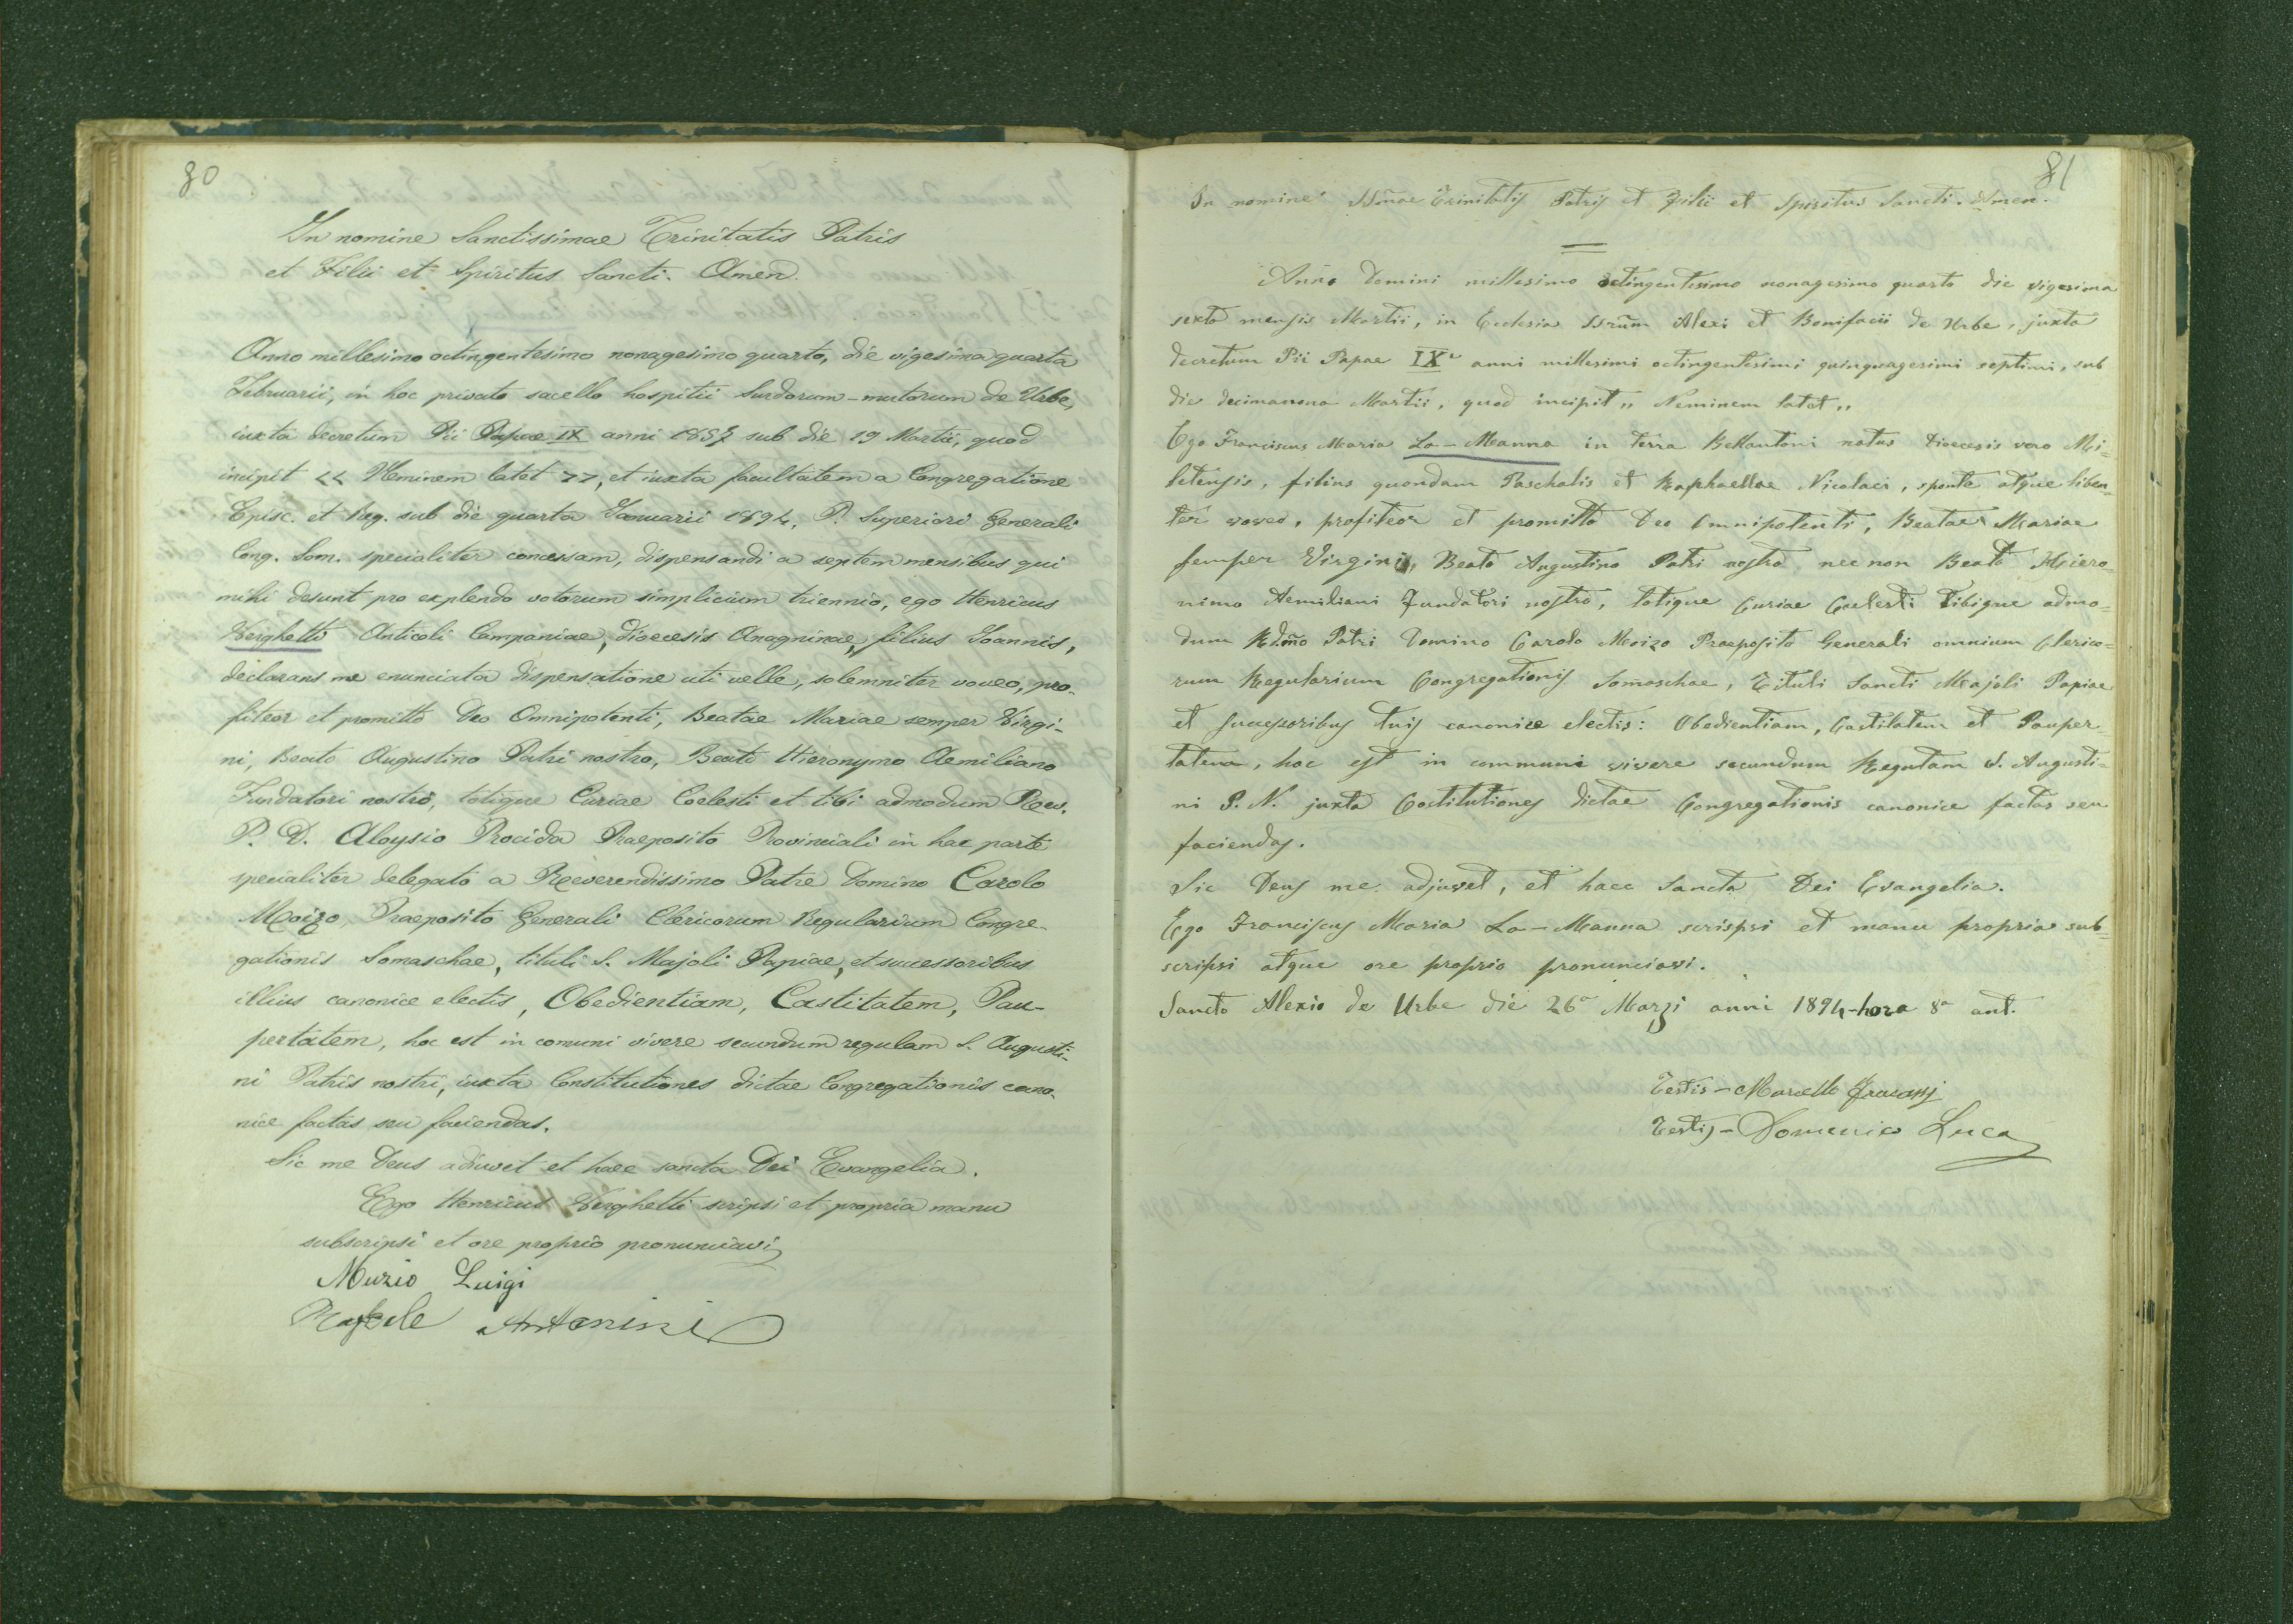 80
In nomine Sanctissimae Trinitatis Patris
et Filii et Spiritus Sancti. Amen.
Anno millesimo octingentesimo nonagesimo quarto, die vigesima quarta
Februarii, in hoc privato sacello hospitii Surdorum-mutorum de Urbe,
iuxta decretum Pii Papae IX anni 1857 sub die 19 Martii, quod
incipit << Neminem latet >>, et iuxta facultatem a Congregatione
Episc. et Reg. sub die quarta Januarii 1894, P. Superiori Generali
Cong. Som. specialiter concessam, dispensandi a septem mensibus qui
mihi desunt pro explendo votorum simplicium triennio, ego Henricus
Verghetti Anticoli Campaniae, dioecesis Anagninae, filius Joannis,
declarans me enunciata dispensatione uti velle, solemniter voveo, pro-
fiteor et promitto Deo Omnipotenti, Beatae Mariae semper Virgi-
ni, Beato Augustino Patri nostro, Beato Hieronymo Aemiliano
Fundatori nostro, totique Curiae Coelesti et tibi admodum Rev.
P. D. Aloysio Procida Praeposito Provinciali in hac parte
specialiter delegato a Reverendissimo Patre Domino Carolo
Moizo, Praeposito Generali Clericorum Regularium Congre-
gationis Somaschae, tituli S. Majoli Papiae, et successoribus
illius canonice electis, Obedientiam, Castitatem, Pau-
pertatem, hoc est in comuni vivere secundum regulam S. Augusti-
ni Patris nostri, iuxta Constitutiones dictae Congregationis cano-
nice factas seu faciendas.
Sic me Deus adiuvet et haec sancta Dei Evangelia.
Ego Henricus Verghetti scripsi et propria manu
subscripsi et ore proprio pronunciavi
Muzio Luigi
Raffaele Antonini
81
In nomine SSmae Trinitatis Patris et Filii et Spiritus Sancti. Amen.
Anno Domini millesimo octingentesimo nonagesimo quarto die vigesima
sexta mensis Martii, in Ecclesia SSrum Alexi et Bonifacii de Urbe, juxta
decretum Pii Papae IX anni millesimi octingentesimi quinquagesimi septimi, sub
die decimanona Martii, quod incipit „ Neminem latet „
Ego Franciscus Maria La-Manna in terra Bellantoni natus Dioecesis vero Mi=
letensis, filius quondam Paschalis et Raphaellae Nicolaci, sponte atque liben-
ter voveo, profiteor et promitto Deo Omnipotenti, Beatae Mariae
semper Virgini, Beato Augustino Patri nostro nec non Beato Hiero-
nimo Aemiliani Fundatori nostro, totique Curiae Coelesti Tibique admo=
dum Rdmo Patri Domino Carolo Moizo Praeposito Generali omnium Clerico=
rum Regularium Congregationis Somaschae, Tituli Sancti Majoli Papiae
et successoribus tuis canonice electis: Obedientiam, Castitatem et Pauper-
tatem, hoc est in communi vivere secundum Regulam S. Augusti=
ni P. N. juxta Costitutiones dictae Congregationis canonice factas seu
faciendas.
Sic Deus me adjuvet, et haec Sancta Dei Evangelia.
Ego Franciscus Maria La-Manna scripsi et manu propria sub=
scripsi atque ore proprio pronunciavi.
Sancto Alexio de Urbe die 26a Marzi anni 1894-hora 8a ant.
Testis - Marcello Fracassi
Testis - Domenico Luca